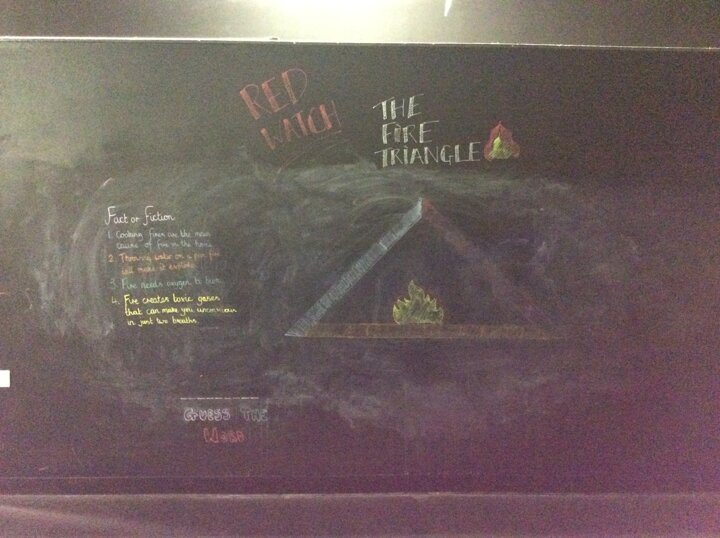 RED
WATCH
THE
FIRE
TRIANGLE
Fact or Fiction
1. Cooking fires are the main
cause of fire in the home
2. Throwing water on a pan fire
will make it explode
3. Fire needs oxygen to burn
4. Fire creates toxic gases
that can make you unconscious
in just two breaths.
GUESS THE
WORD